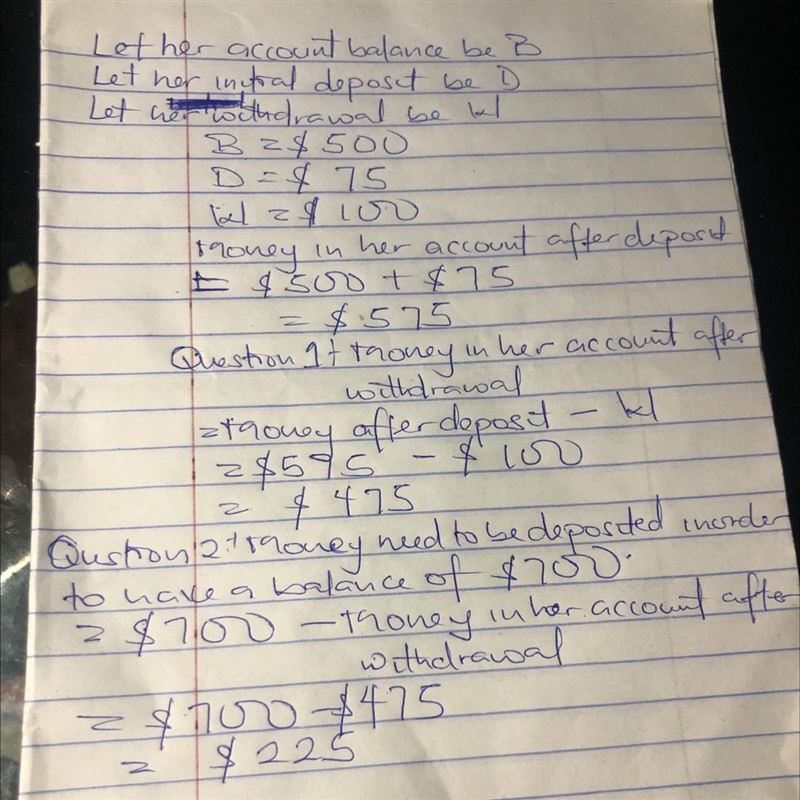 Let her account balance be B
Let her initial deposit be D
Let her withdrawal be W
B = $500
D = $ 75
W = $100
Money in her account after deposit
= $500 + $75
= $.575
Question 1: Money in her account after
withdrawal
= Money after deposit - W
= $575 - $100
= $ 475
Qustion 2: Money need to be deposited inorder
to have a balance of $700.
= $700 - Money in her account after
withdrawal
= $700 - $475
= $225